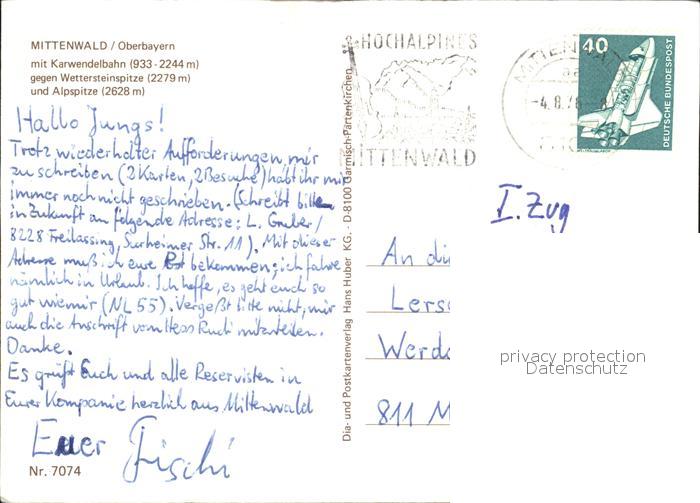 MITTENWALD / Oberbayern
mit Karwendelbahn (933-2244 m)
gegen Wettersteinspitze (2279 m)
und Alpspitze (2628 m)
Hallo Jungs!
Trotz wiederholter Aufforderungen, mir
zu schreiben (2 Karten, 2 Besuche) habt ihr mir
immer noch nicht geschrieben. (Schreibt bitte
in Zukunft an folgende Adresse: L. Gruber/
8228 Freilassing, Surheimer Str. 11). Mit dieser
Adresse muß ich eure Post bekommen; ich fahre
nämlich in Urlaub. Ich hoffe, es geht euch so
gut wie mir (NL 55). Vergeßt bitte nicht, mir
auch die Anschrift vom Hess Rudi mitzuteilen.
Danke.
Es grüßt Euch und alle Reservisten in
Eurer Kompanie herzlich aus Mittenwald
Euer Fischi
Nr. 7074
Dia- und Postkartenverlag Hans Huber KG. - D-8100 Garmisch-Partenkirchen
HOCHALPINES
MITTENWALD
MITTENWA
-4.8.76-
40
DEUTSCHE BUNDESPOST
I. Zug
An di
Lers
Werd
811 M
privacy protection
Datenschutz